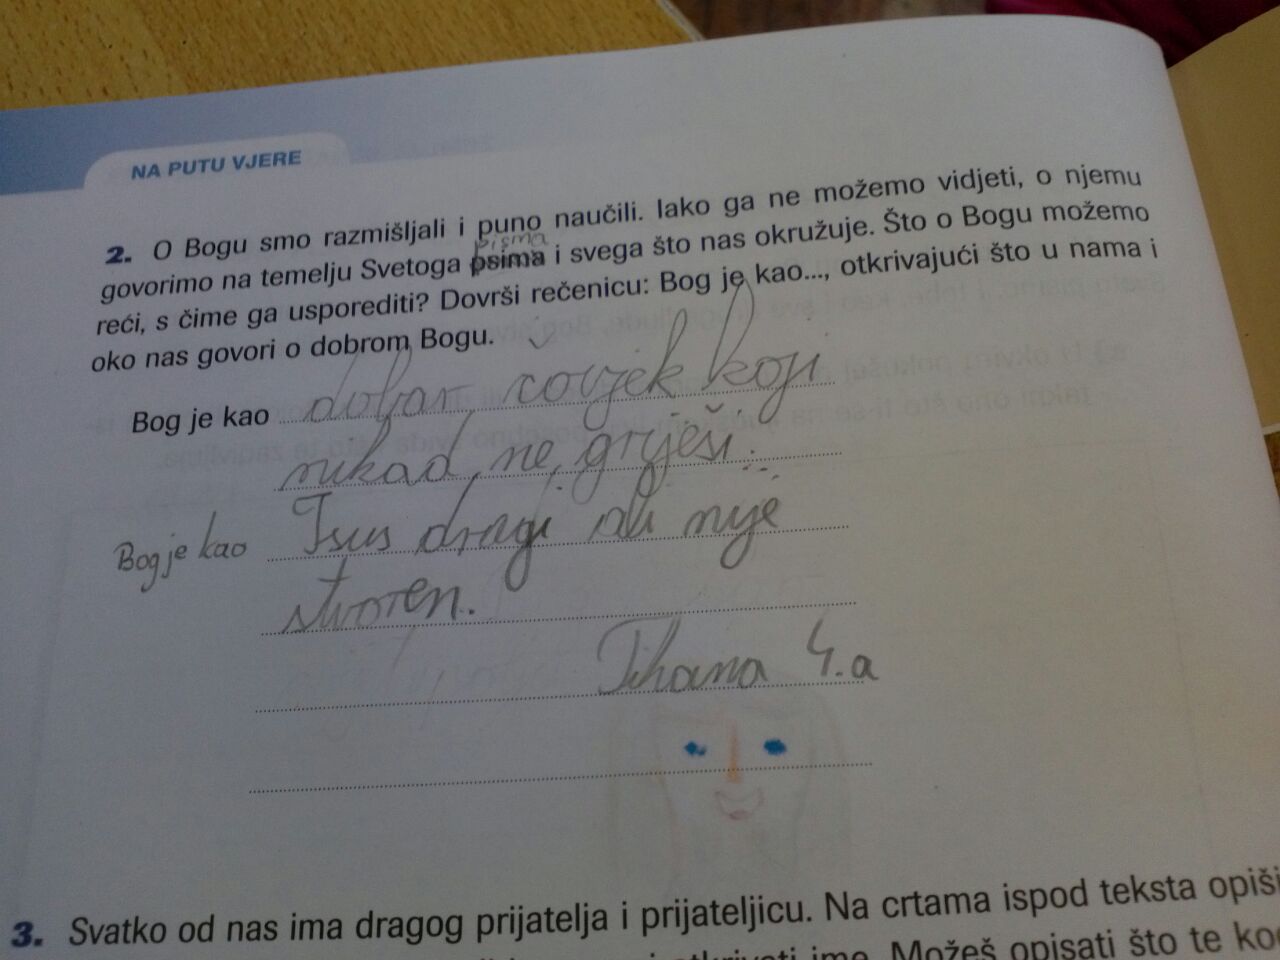 NA PUTU VJERE
2. O Bogu smo razmišljali i puno naučili. Iako ga ne možemo vidjeti, o njemu
pisma
govorimo na temelju Svetoga psima i svega što nas okružuje. Što o Bogu možemo
reći, s čime ga usporediti? Dovrši rečenicu: Bog je kao..., otkrivajući što u nama i
oko nas govori o dobrom Bogu.
Bog je kao dobar čovjek koji
nikad ne griješi.
Bog je kao Isus dragi ali nije
stvoren.
Tihana 4.a
3. Svatko od nas ima dragog prijatelja i prijateljicu. Na crtama ispod teksta opiši
ime. Možeš opisati što te